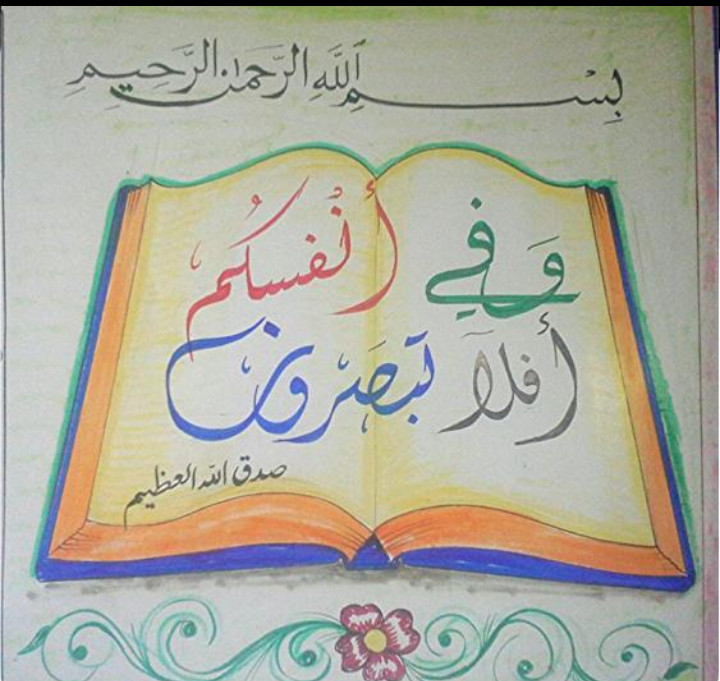 بِسْمِ اللَّهِ الرَّحمٰنِ الرَّحِيمِ
وَفِي أَنْفسكُم
أفلَا تبصَرون
صدق الله العظيم